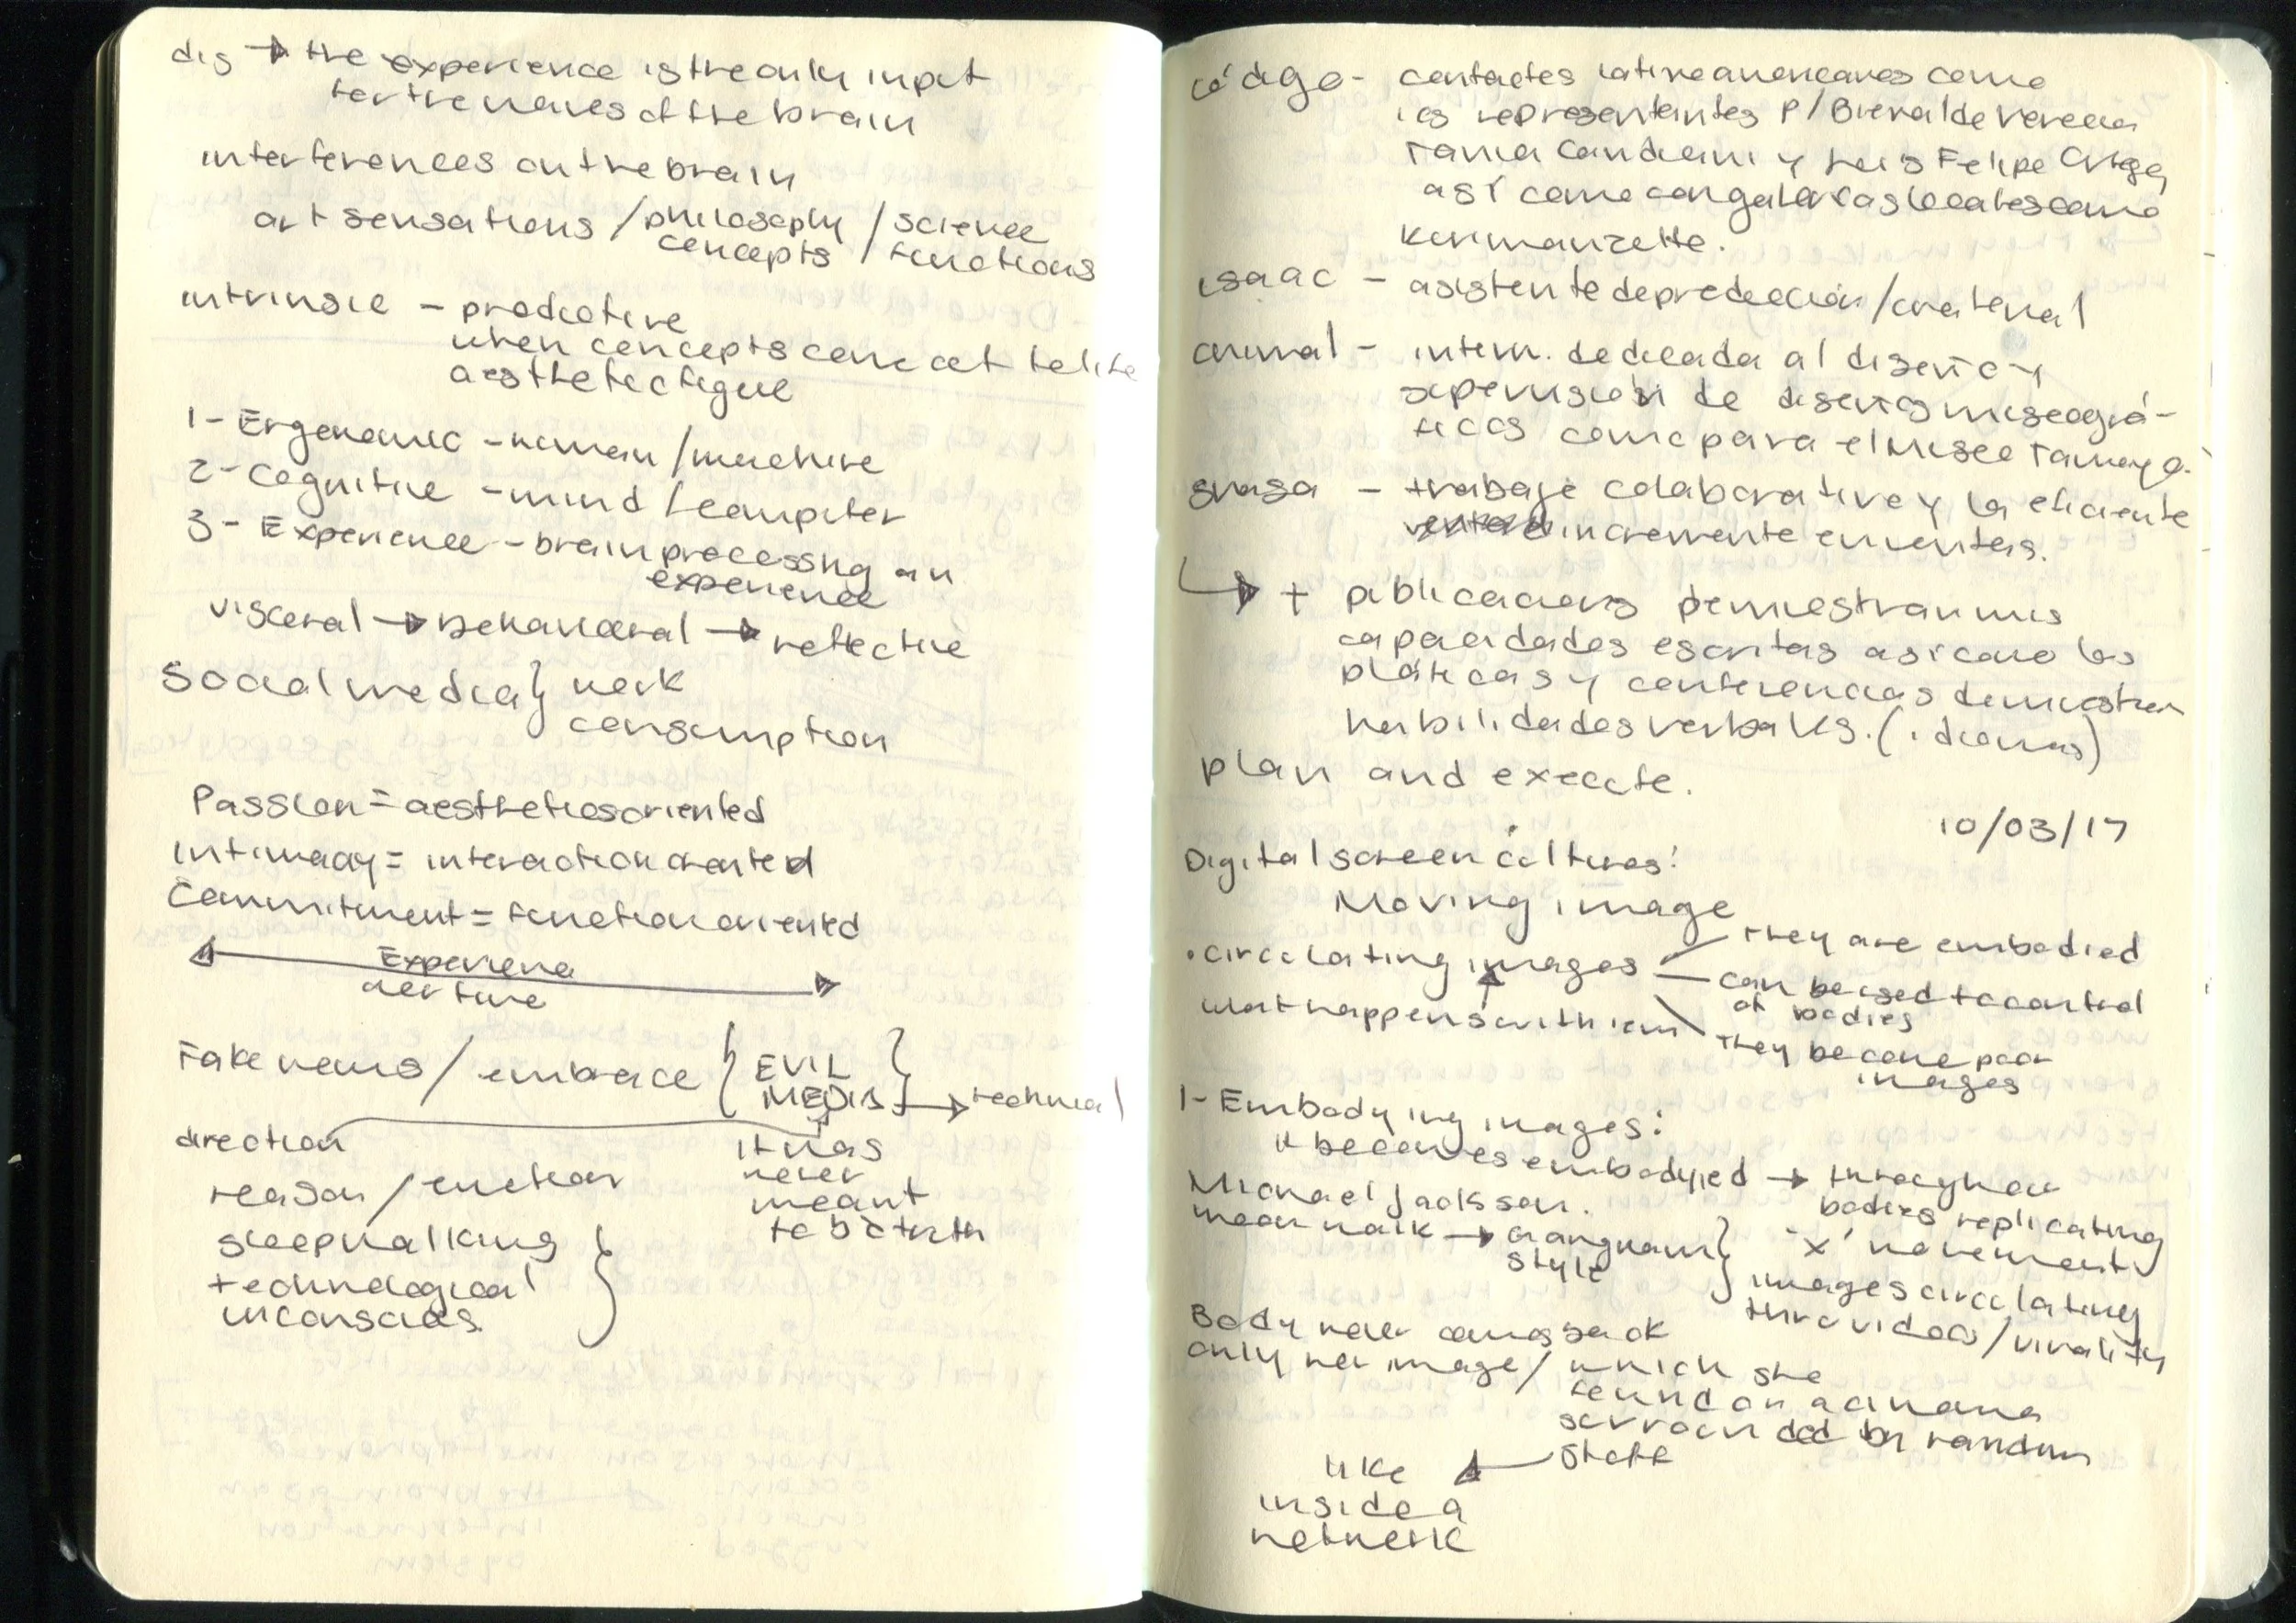 dis → the experience is the only input
for the nerves of the brain
interferences on the brain
art sensations / philosophy concepts / science functions
intrinsic - productive
when concepts come out to life
aesthetic figure
1- Ergonomic - human / machine
2- Cognitive - mind / computer
3- Experience - brain processing an
experience
visceral → behavioral → reflective
social media } work
consumption
Passion = aesthetics oriented
Intimacy = interaction oriented
Commitment = function oriented
Experience
over time
Fake news / embrace { EVIL
MEDIA } → technical
direction
it was
never
meant
to b d truth
reason / emotion
sleepwalking
technological
unconscious
código - contactos latinoamericanos como
los representantes p/ Bienal de Venecia
Tania Candiani y Luis Felipe Ortega
así como con galerías locales como
kurimanzutto.
isaac - asistente de producción / material
animal - interv. dedicada al diseño y
supervisión de diseños museográ-
ficos como para el Museo Tamayo.
- trabajo colaborativo y la eficiente
incremento en ventas.
↳ + publicaciones demuestran mis
capacidades escritas así como las
pláticas y conferencias demuestran
habilidades verbales. (idiomas)
plan and execute.
10/03/17
Digital screen cultures:
Moving image
• circulating images
they are embodied
can be used to control
of bodies
what happens with 'em
they become poor
images
1- Embodying images:
it becomes embodyied → through our
bodies replicating
"x" movement
Michael Jackson.
moon walk → Gangnam
style }
images circulating
thru videos / virality
Body never comes back
only her image / which she
found on a
surrounded by random
stuff
like
inside a
network